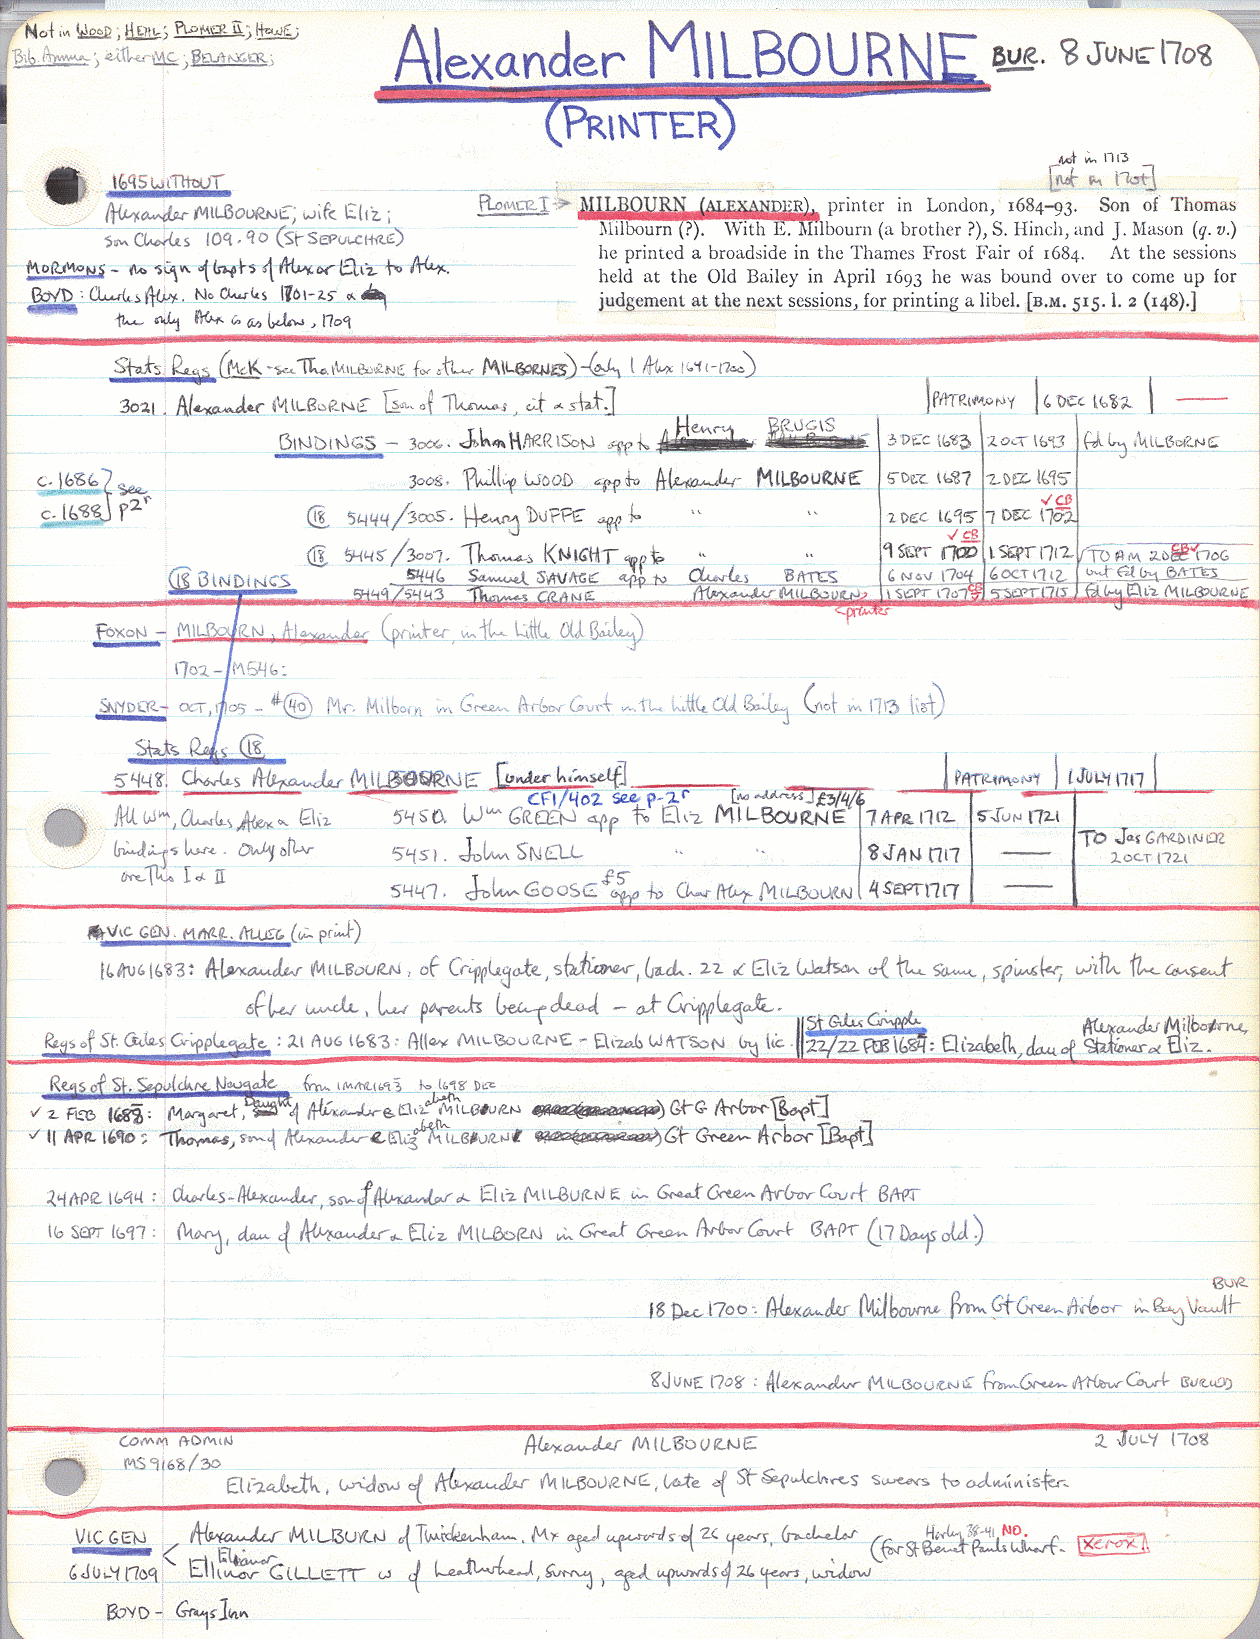 Not in WOOD; HEHL; PLOMER II; HOWE;
Bib. Annua; either MC; BELANGER;
Alexander MILBOURNE BUR. 8 JUNE 1708
(PRINTER)
not in 1713
[not in 1705]
1695 WITHOUT
Alexander MILBOURNE; wife Eliz;
son Charles 109.90 (St SEPULCHRE)
MORMONS - no sign of bapts of Alex or Eliz to Alex.
BOYD: Charles Alex. No Charles 1701-25 &
the only Alex is as below, 1709
PLOMER I → MILBOURN (ALEXANDER), printer in London, 1684-93. Son of Thomas
Milbourn (?). With E. Milbourn (a brother ?), S. Hinch, and J. Mason (q. v.)
he printed a broadside in the Thames Frost Fair of 1684. At the sessions
held at the Old Bailey in April 1693 he was bound over to come up for
judgement at the next sessions, for printing a libel. [B.M. 515. l. 2 (148).]
Stats Regs (McK - see Tho. MILBOURNE for other MILBORNES) - (only 1 Alex 1641-1700)
3021. Alexander MILBORNE [son of Thomas, cit & stat.] PATRIMONY 6 DEC 1682 —
BINDINGS - 3006. John HARRISON app to Henry BRUGIS 3 DEC 1683 2 OCT 1693 fd by MILBORNE
c. 1686 } see
c. 1688 } p2r
3008. Phillip WOOD app to Alexander MILBOURNE 5 DEC 1687 2 DEC 1695
(18) 5444/3005. Henry DUFFE app to " " 2 DEC 1695 7 DEC 1702 ✓CB
(18) 5445/3007. Thomas KNIGHT app to " " 9 SEPT 1700 ✓CB 1 SEPT 1712 TO AM 2 DEC 1706 CB✓
5446 Samuel SAVAGE app to Charles BATES 6 NOV 1704 6 OCT 1712 but fd by BATES
(18 BINDINGS
5449/5443 Thomas CRANE Alexander MILBOURN, printer 1 SEPT 1707 CB 5 SEPT 1715 fd by Eliz MILBOURNE
FOXON - MILBOURN, Alexander (printer, in the Little Old Bailey)
1702 - M546:
SNYDER - OCT, 1705 - #(40) Mr. Milborn in Green Arbor Court in the Little Old Bailey (not in 1713 list)
Stats Regs (18
5448. Charles Alexander MILBOURNE [under himself] PATRIMONY 1 JULY 1717
CF1/402 see p-2r [no address] £3/4/6
All Wm, Charles, Alex & Eliz
bindings here. Only other
are Tho I & II
5450. Wm GREEN app to Eliz MILBOURNE 7 APR 1712 5 JUN 1721
5451. John SNELL " " 8 JAN 1717 — TO Jas GARDINER
2 OCT 1721
5447. John GOOSE £5 app to Char Alex MILBOURN 4 SEPT 1717 —
VIC GEN. MARR. ALLEG (in print)
16 AUG 1683: Alexander MILBOURN, of Cripplegate, stationer, bach. 22 & Eliz Watson of the same, spinster, with the consent
of her uncle, her parents being dead - at Cripplegate.
Regs of St. Giles Cripplegate: 21 AUG 1683: Allex MILBOURNE - Elizab WATSON by lic.
St Giles Cripple
22/22 FEB 1684: Elizabeth, dau of Alexander Milborne, Stationer & Eliz.
Regs of St. Sepulchre Newgate from 1 MAR 1693 to 1698 DEC
✓ 2 FEB 1688: Margaret, Daught of Alexander & Elizabeth MILBURN Gt G Arbor [Bapt]
✓ 11 APR 1690: Thomas, son of Alexander & Elizabeth MILBURNE Gt Green Arbor [Bapt]
24 APR 1694: Charles-Alexander, son of Alexander & Eliz MILBURNE in Great Green Arbor Court BAPT
16 SEPT 1697: Mary, dau of Alexander & Eliz MILBORN in Great Green Arbor Court BAPT (17 Days old.)
BUR
18 Dec 1700: Alexander Milbourne from Gt Green Arbor in Vault
8 JUNE 1708: Alexander MILBOURNE from Green Arbour Court BURIED
COMM ADMIN Alexander MILBOURNE 2 JULY 1708
MS 9168/30
Elizabeth, widow of Alexander MILBOURNE, late of St Sepulchres swears to administer.
VIC GEN
6 JULY 1709
Alexander MILBURN of Twickenham. Mx aged upwards of 26 years, bachelor
Elianor
Ellinor GILLETT w of Leatherhead, Surrey, aged upwards of 26 years, widow
Harley 38-41, NO.
(for St Benet Pauls Wharf. XEROX
BOYD - Grays Inn